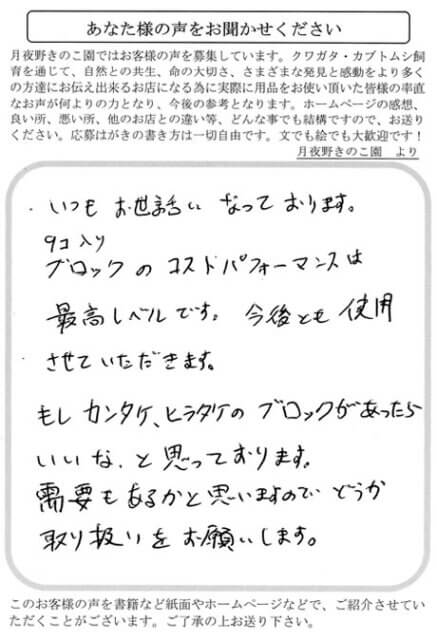 あなた様の声をお聞かせください
月夜野きのこ園ではお客様の声を募集しています。クワガタ・カブトムシ飼
育を通じて、自然との共生、命の大切さ、さまざまな発見と感動をより多く
の方達にお伝え出来るお店になる為に実際に用品をお使い頂いた皆様の率直
なお声が何よりの力となり、今後の参考となります。ホームページの感想、
良い所、悪い所、他のお店との違い等、どんな事でも結構ですので、お送り
ください。応募はがきの書き方は一切自由です。文でも絵でも大歓迎です！
月夜野きのこ園　より
・いつも お世話に なって おります。
9コ入り
ブロックの コストパフォーマンスは
最高レベルです。 今後とも 使用
・させていただきます。
もし カンタケ、ヒラタケの ブロックがあったら
いいな、と思っております。
需要もあるかと思いますので どうか
取り扱いを お願いします。
このお客様の声を書籍など紙面やホームページなどで、ご紹介させてい
ただくことがございます。ご了承の上お送り下さい。